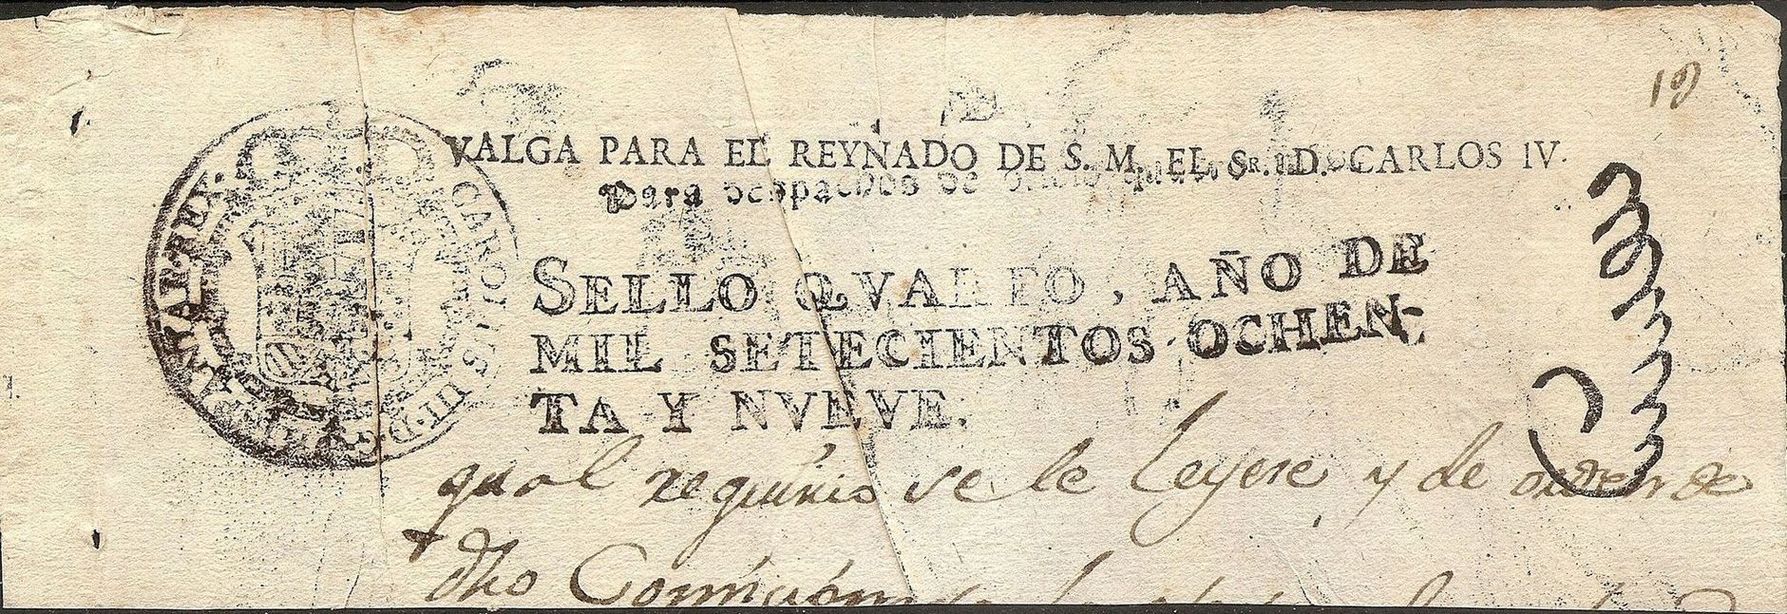 19
VALGA PARA EL REYNADO DE S. M. EL SR. D. CARLOS IV.
Para despachos de oficio
SELLO QVARTO, AÑO DE
MIL SETECIENTOS OCHEN-
TA Y NVEVE.
CAROLUS III D. G. HISPANIAR. REX.
qual requirio se le Leyere y de orden de
dho